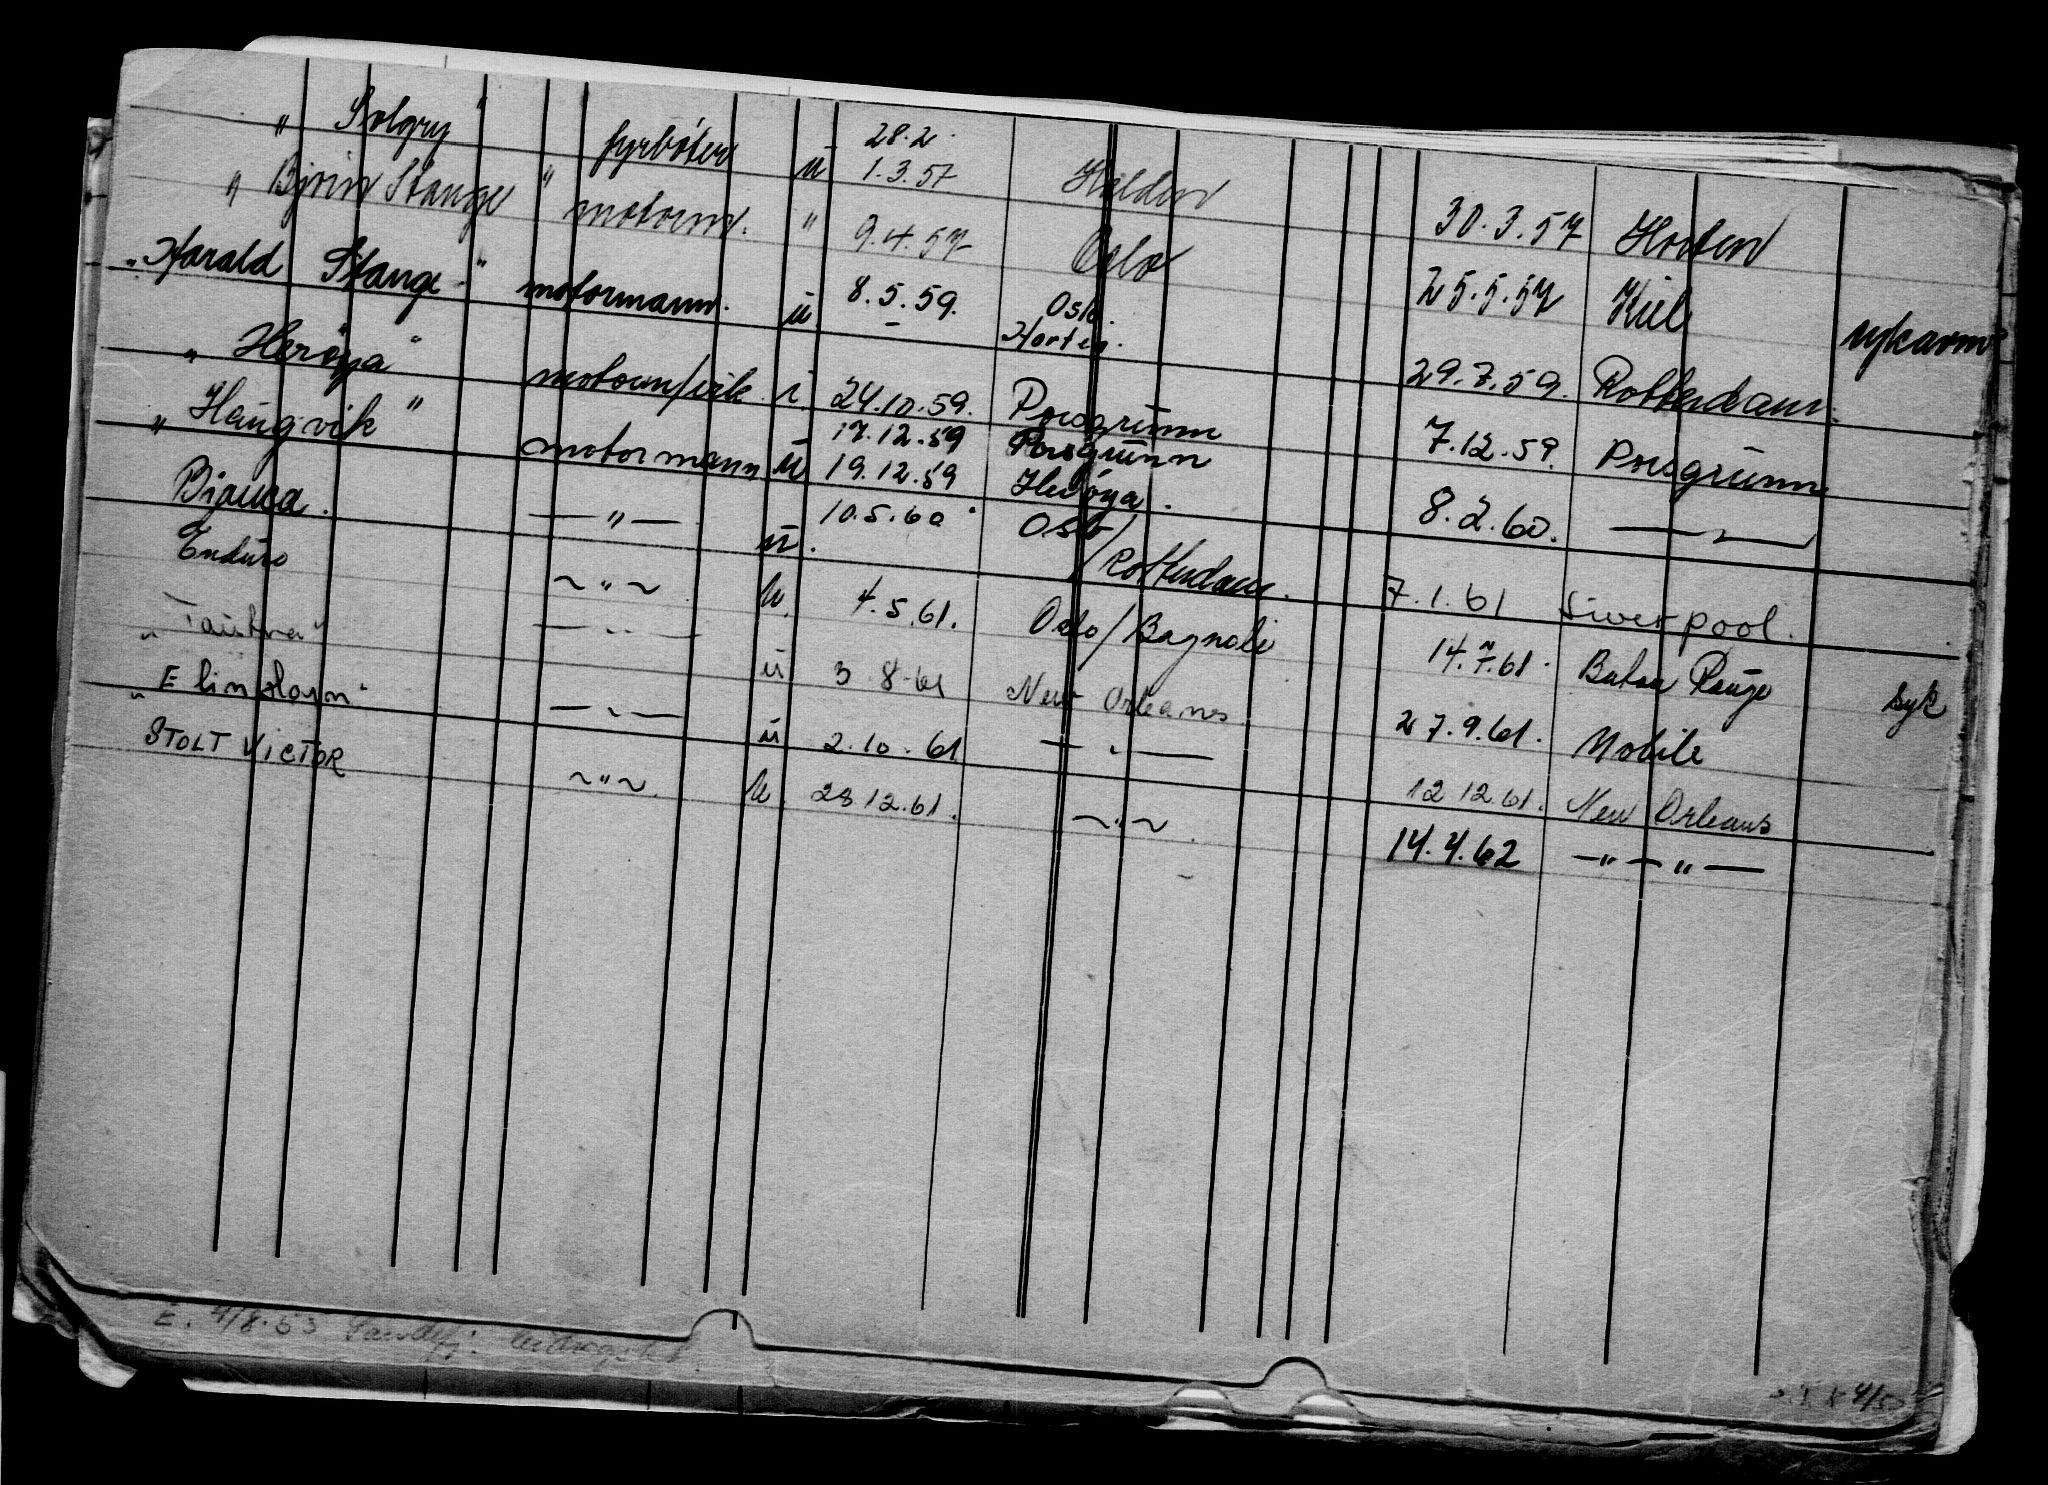 " Solgry " fyrbøter u 28.2. 1.3.57 Halden 30.3.57 Horten
" Bjørn Stange " motorm. " 9.4.57 Oslo 25.5.57 Kiel
" Harald Stange " motormann. u 8.5.59. Oslo. Horten. 29.7.59. Rotterdam.
" Herøya " motorm/vik. 24.10.59. Porsgrunn 7.12.59. Porsgrunn
" Haugvik " motormann u 17.12.59 Porsgrunn 19.12.59 Herøya. 8.2.60. — " —
Bianca. — " — u. 10.5.60 Oslo / Rotterdam. 7.1.61 Liverpool.
Enduro ~ " ~ u. 4.5.61. Oslo / Bagnoli 14.7.61. Baton Rouge syk
" Tautra " — " — u 3.8.61 New Orleans 27.9.61. Mobile
" Elin Horn " — " — u 2.10.61 — " — 12.12.61. New Orleans
STOLT VICTOR ~ " ~. u 28.12.61. ~ " ~. 14.4.62 — " — " —
E. 4/8.53